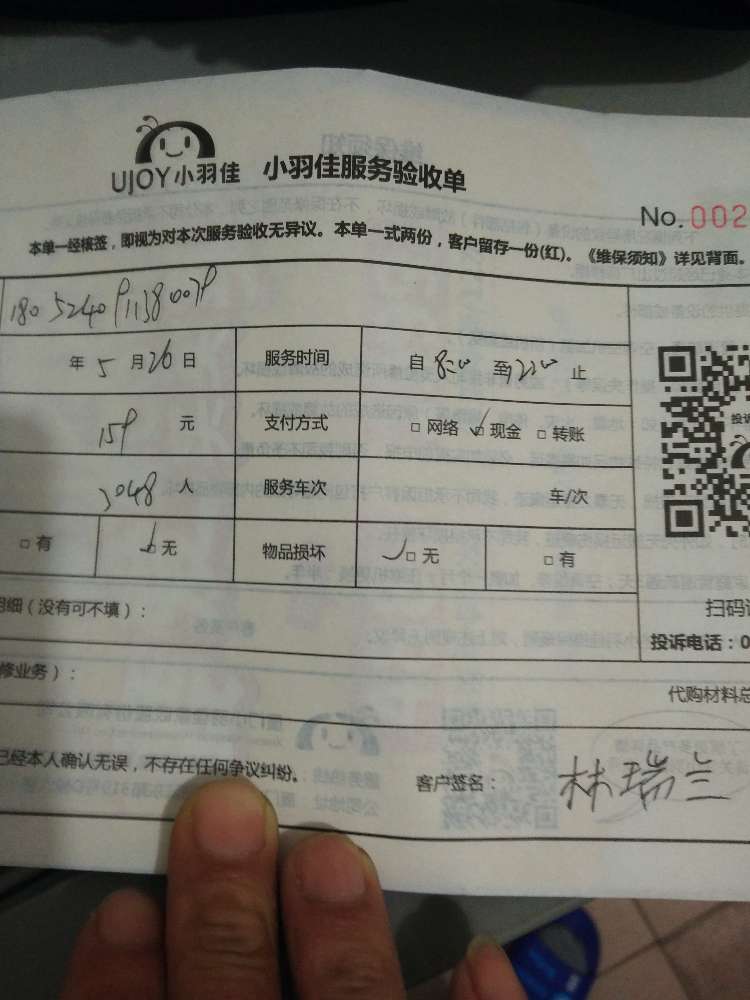 UJOY小羽佳 小羽佳服务验收单
No.002
本单一经核签，即视为对本次服务验收无异议。本单一式两份，客户留存一份(红)。《维保须知》详见背面。
年5月26日 服务时间 自 至 止
159元 支付方式 □网络 □现金 □转账
3048人 服务车次 车/次
□有 □无 物品损坏 □无 □有
投诉
明细（没有可不填）：
扫码
投诉电话：0
修业务）：
代购材料总
已经本人确认无误，不存在任何争议纠纷。 客户签名： 林瑞兰